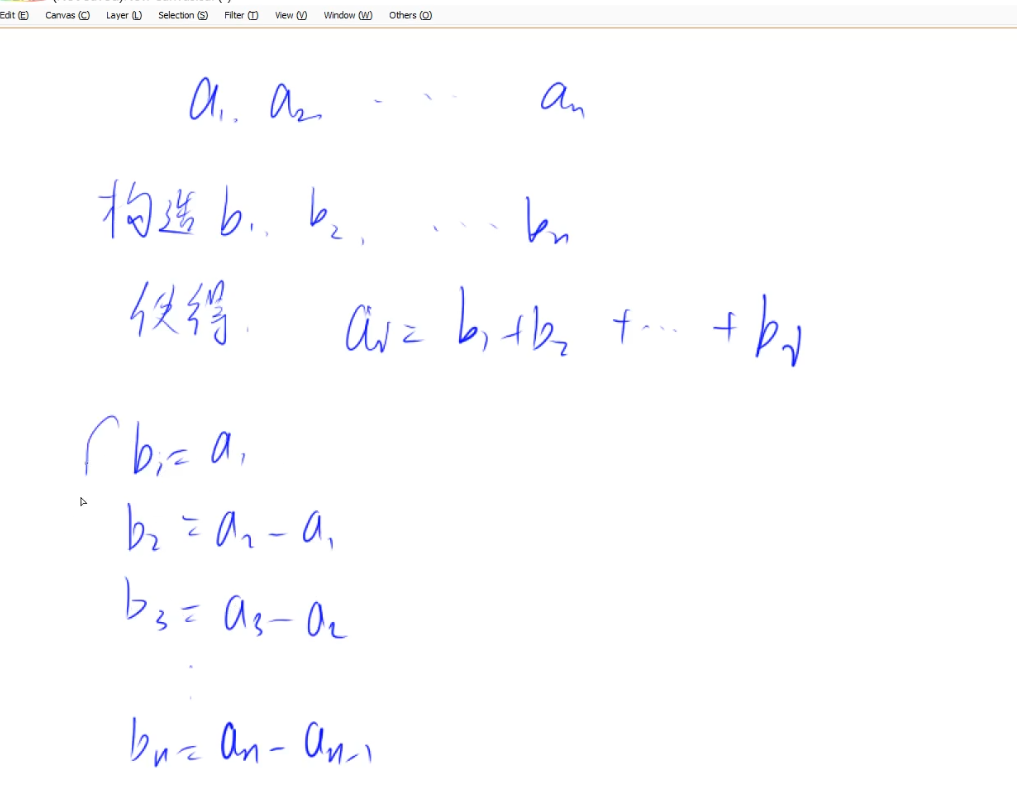 Edit (E) Canvas (C) Layer (L) Selection (S) Filter (T) View (V) Window (W) Others (O)
a₁, a₂ ····· aₙ
构造 b₁, b₂, ···· bₙ
使得. aᵢ = b₁ + b₂ + ··· + bᵢ
b₁ = a₁
b₂ = a₂ - a₁
b₃ = a₃ - a₂
bₙ = aₙ - aₙ₋₁